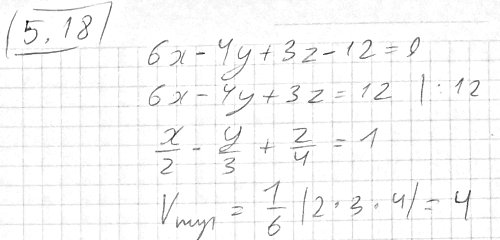 5.18
6x - 4y + 3z - 12 = 0
6x - 4y + 3z = 12 | : 12
x/2 - y/3 + z/4 = 1
Vпир = 1/6 |2 · 3 · 4| = 4